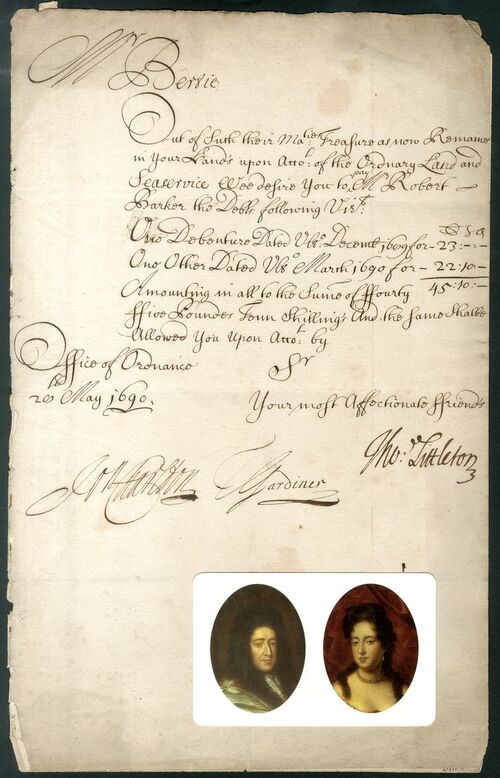 Mr Bertie
Out of such their Maties Treasure as now Remaines
in Your hands upon Accot. of the Ordnary Land and
Seaservice Wee desire You to pay Mr Robert
Harker the Debts following Vizt.
£ s d
One Debenture Dated Ulto. Decembr 1689 for - 23:-:-
One Other Dated Ulto. March 1690 for - 22:10:-
Amounting in all to the Summe of ffourty 45:10:-
ffive Poundes Tenn Shillings And the same shalbe
Allowed You Upon Accot. by
Office of Ordnance Sr
May 1690. Your most Affectionate ffriends
Tho: Littleton
Jo Charlton Gardiner